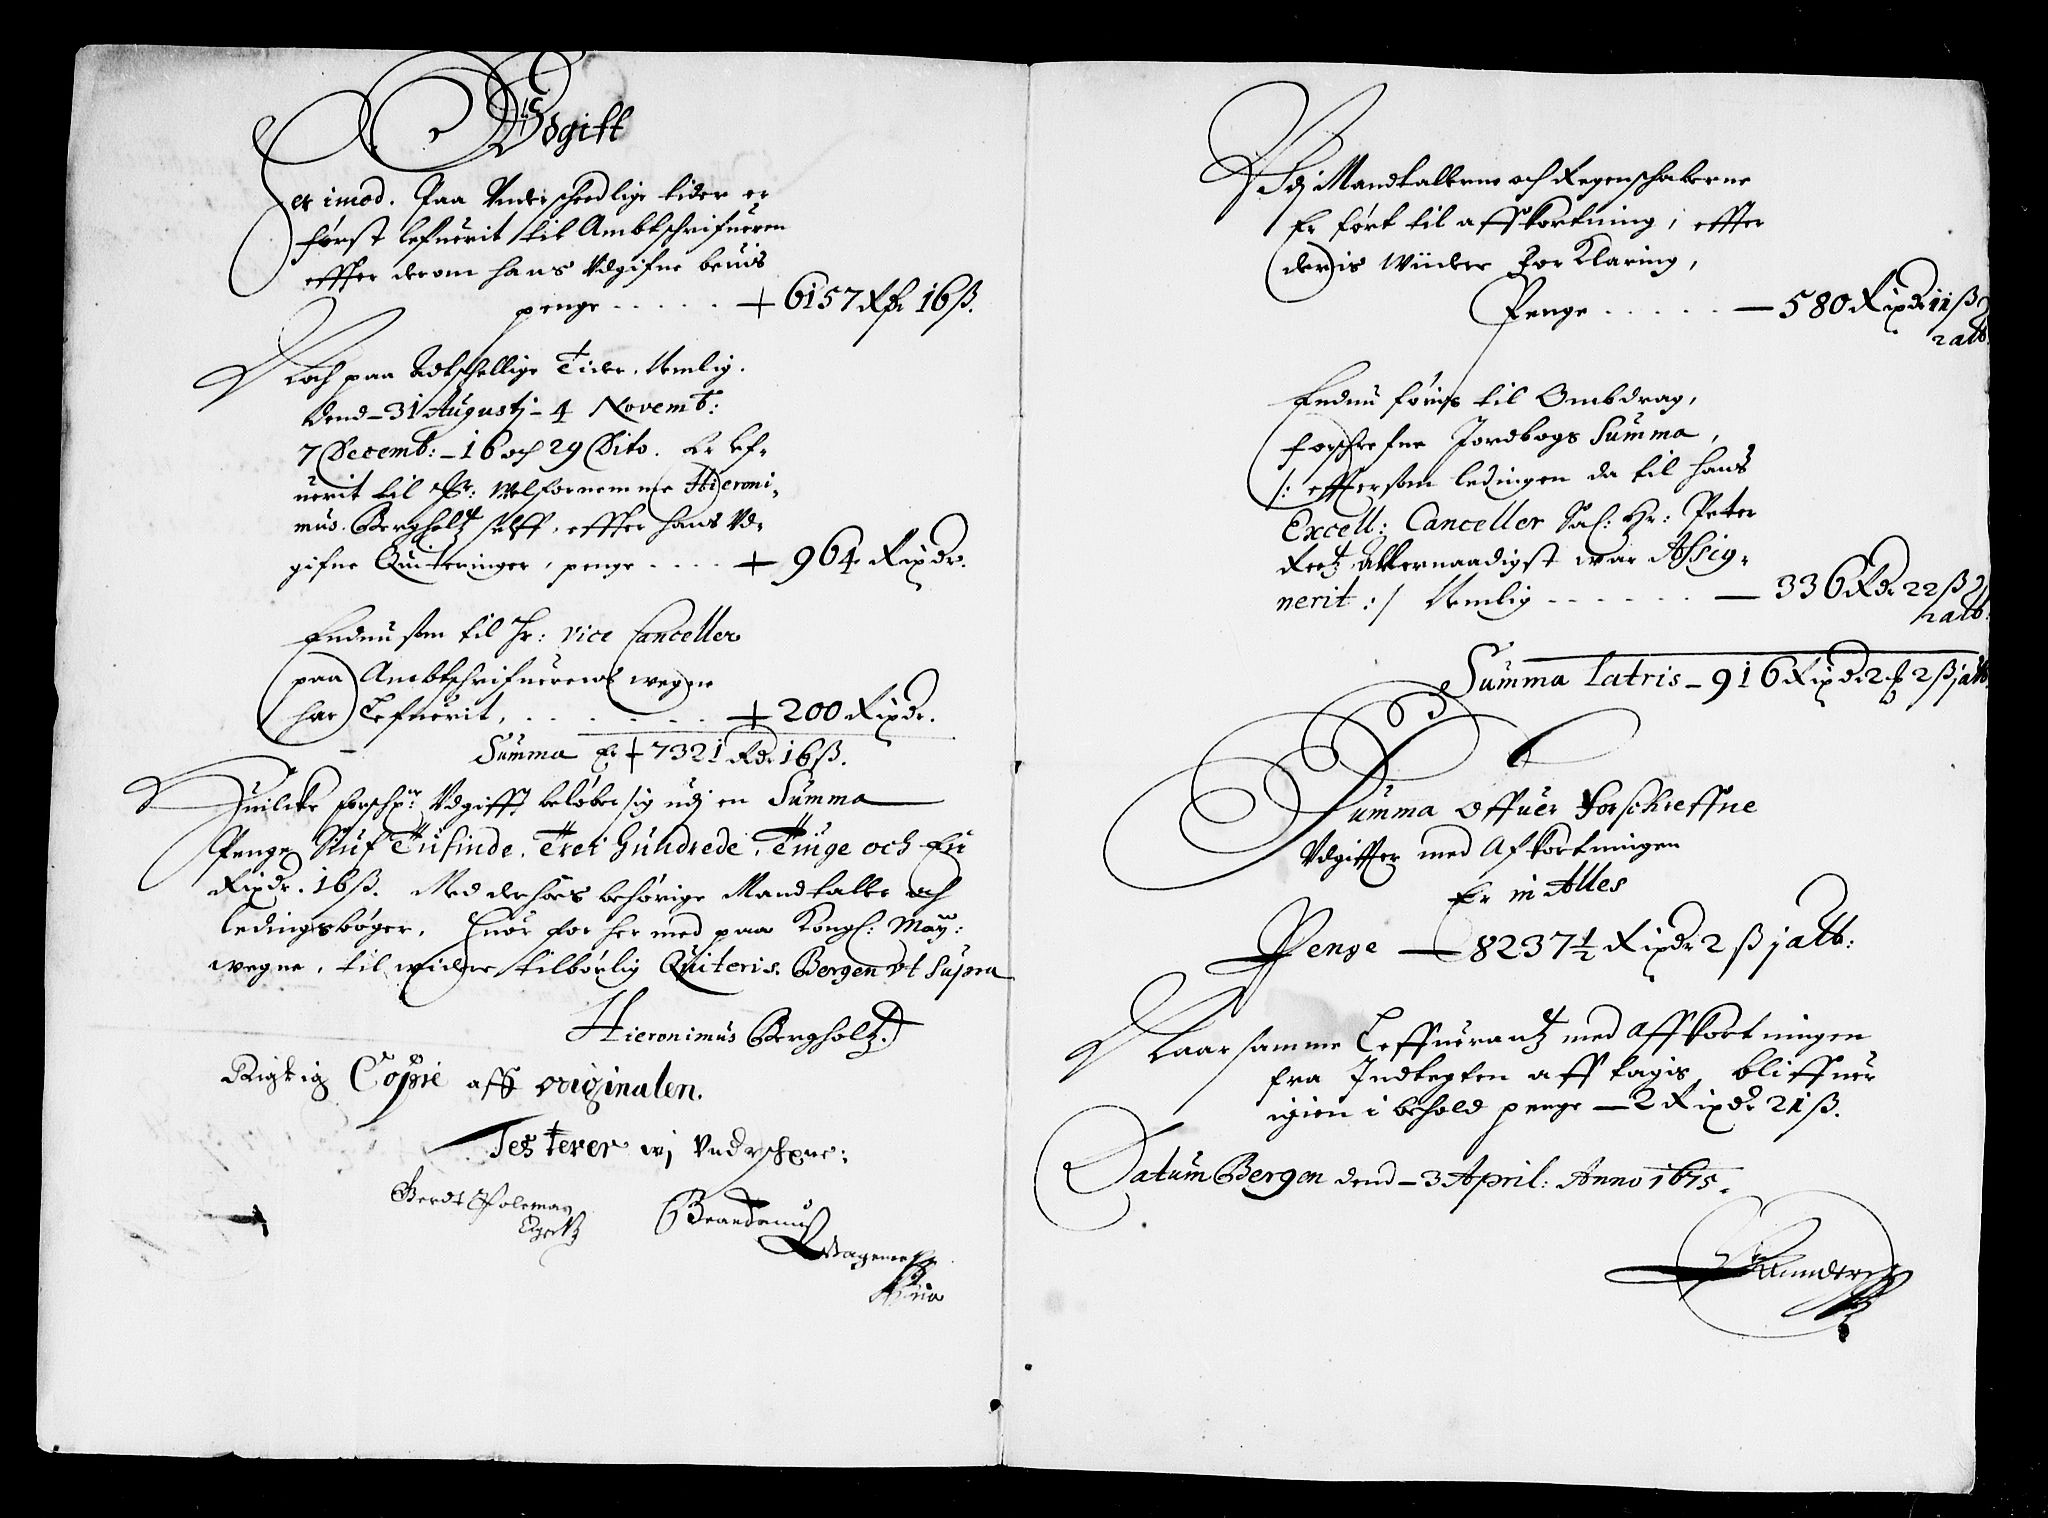 Udgift
Her imod. Paa Underscheedlige tider er
først lefuerit til Ambtschrifueren
effter derom hans Udgifne beuis
penge . . . . . + 6157 Rdr 16 ß.
Noch paa Adtschellige Tider. Nemlig.
Dend – 31 Augustj – 4 Novemb:
7 Decemb: – 16 och 29 Dito. Er lef-
uerit til Hr: Welfornemme Hieroni-
mus. Bergholtz selff, effter hans Ud-
gifne Quiteringer, penge . . . . + 964 Rixdr.
Endnu som til Hr: vice Canceller
paa Ambtschrifuerens wegne
har Lefuerit, . . . . . . . + 200 Rixdr.
Summa Er + 7321 Rdr 16 ß.
Huilcke forschr: Udgifft beløber sig udj en Summa
Penge Siuf Tusinde. Trei Hundrede. Tiuge och En
Rixdr. 16 ß. Med derhoes behörige Mandtalle och
ledingsbøger. Huor for her med paa Kongl: May:
wegne, til wider tilbörlig Quiteris. Bergen Ut Supra
Hieronimus Bergholtz.
Rigtig Copie aff originalen.
Testerer wj Underschrne:
Gerdt Poleman
Egertz
Brandanus
Wagener
Udj Mandtallerne och Regenschaberne
Er ført til affkortning, effter
deris wiidere Forklaring,
Penge . . . . . — 580 Rixdr 11 ß
2 alb.
Endnu föris til Ombdrag,
forschrefne Jordbogs Summa,
/: effttersom ledingen da til hans
Excell: Canceller Sal: Hr: Peter
Reetz Allernaadigst war Assig-
nerit :/ Nemlig . . . . . . — 336 Rdr 22 ß
2 alb.
Summa Latris – 916 Rixdr 2 ß jalb.
Summa offuer Forschreffne
Udgiffter med Afkortningen
Er in Alles
Penge — 8237½ Rixdr 2 ß j alb:
Naar samme Leffuerantz med affkortningen
fra Indtegten aff tagis, bliffuer
igien i behold penge — 2 Rixdr 21 ß.
Datum Bergen dend – 3 April: Anno 1675.